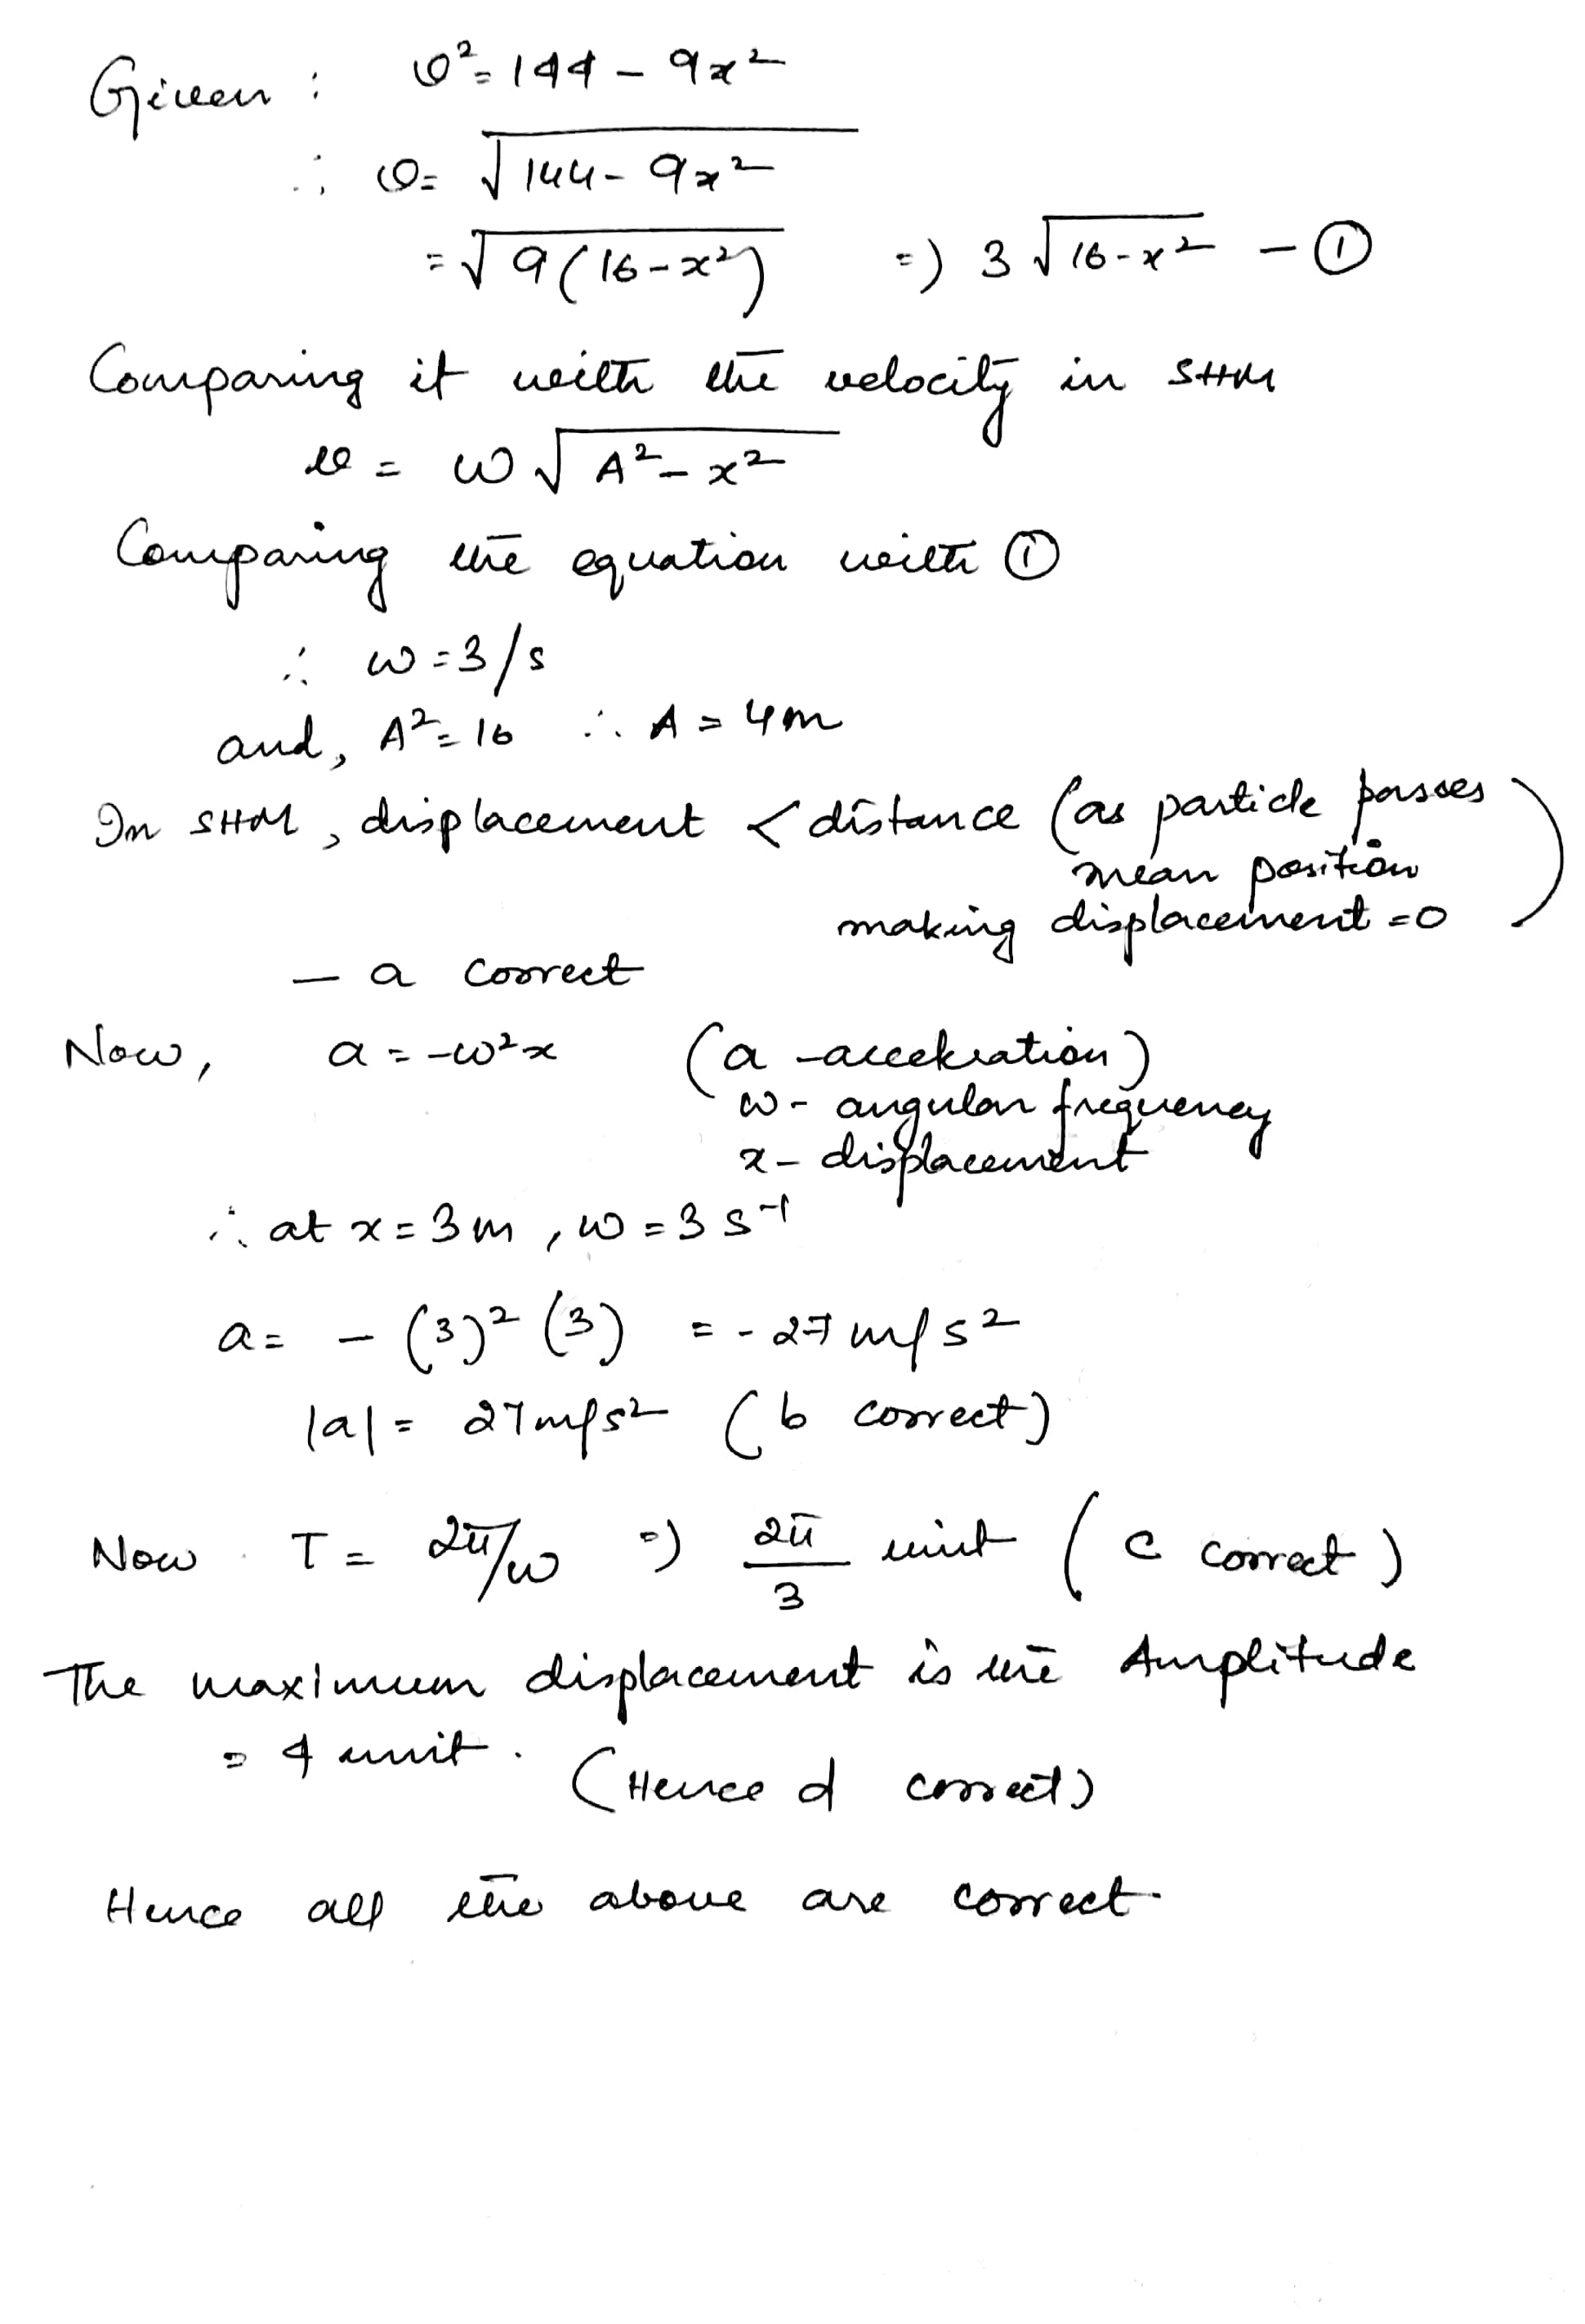 Given : v² = 144 - 9x²
∴ v = √144 - 9x²
= √9(16-x²) => 3√16-x² - ①
Comparing it with the velocity in SHM
v = ω√A² - x²
Comparing the equation with ①
∴ ω = 3/s
and, A² = 16 ∴ A = 4m
In SHM, displacement < distance (as particle passes
mean position
making displacement = 0)
- a correct
Now, a = -ω²x (a - acceleration)
ω - angular frequency
x - displacement
∴ at x = 3m, ω = 3 s⁻¹
a = - (3)² (3) = - 27 m/s²
|a| = 27 m/s² (b correct)
Now T = 2π/ω => 2π/3 unit (c correct)
The maximum displacement is the Amplitude
= 4 unit.
(Hence d correct)
Hence all the above are correct